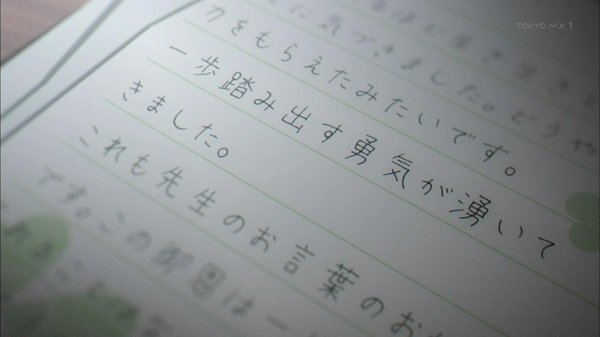 TOKYO MX1
に気づきました。どうや
力をもらえたみたいです。
一歩踏み出す勇気が湧いて
きました。
これも先生のお言葉のお
です。この御恩は一